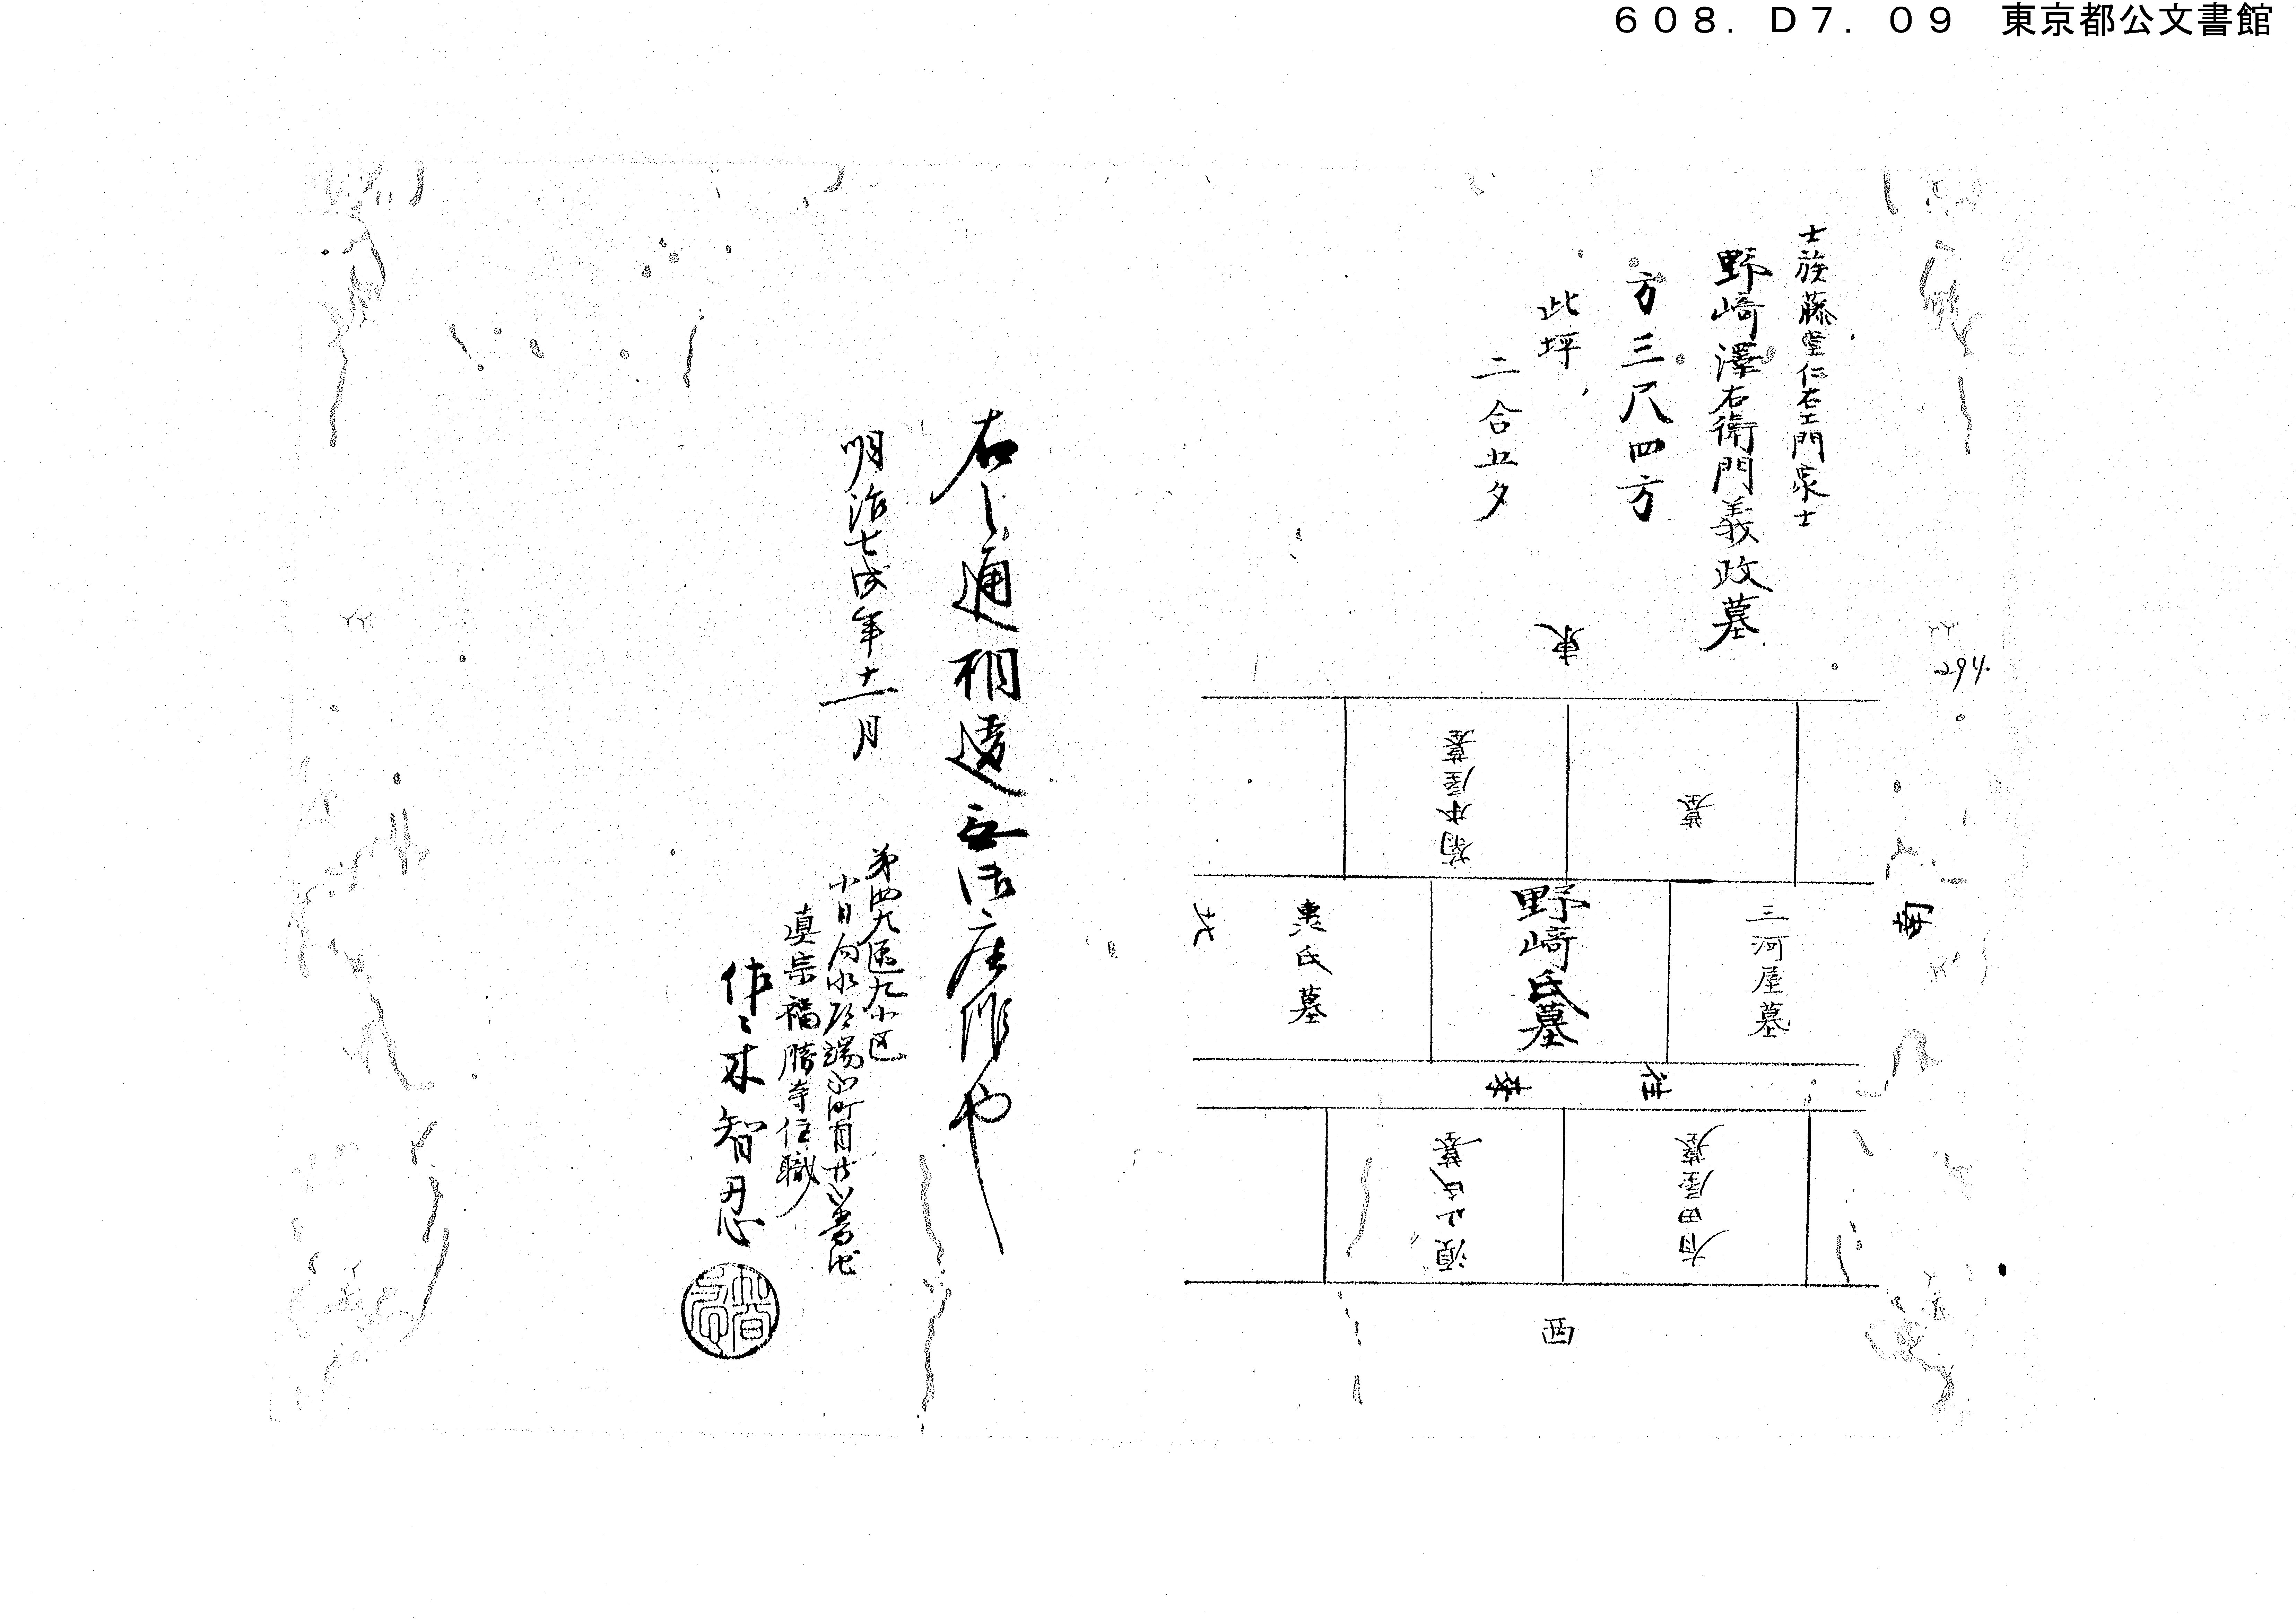 608. D7. 09 東京都公文書館
士族藤堂仁右エ門家士
野崎澤右衛門義政墓
方三尺四方
此坪
二合五夕
294
東
墓
菊本屋墓
南
三河屋墓
野崎氏墓
惠氏墓
北
往来
有田屋墓
須山氏墓
西
右之通相違無御座候也
明治七戌年十一月
第四大區九小区
小日向水道端町
真宗福勝寺住職
佐々木智忍